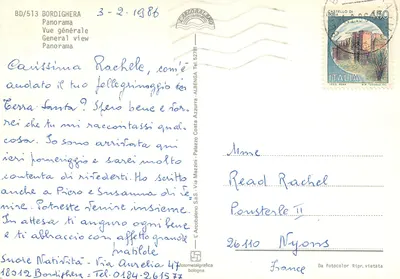 BD/513 BORDIGHERA
Panorama
Vue générale
General view
Panorama
3-2-1986
450
ITALIA
Carissima Rachele, com'è
andato il tuo pellegrinaggio in
Terra Santa? Spero bene e vor-
rei che tu mi raccontassi qual-
cosa. Io sono arrivata qui
ieri pomeriggio e sarei molto
contenta di rivederti. Ho scritto
anche a Piero e Susanna di ve-
nire. Potreste venire insieme.
In attesa ti auguro ogni bene
e ti abbraccio con affetto grande
Matilde
Suore Natività - Via Aurelia 47
18012 Bordighera - Tel. 0184-261577
Mme
Read Rachel
Pousterle II
26110 Nyons
France
Da Fotocolor Ripr.vietata
bologna